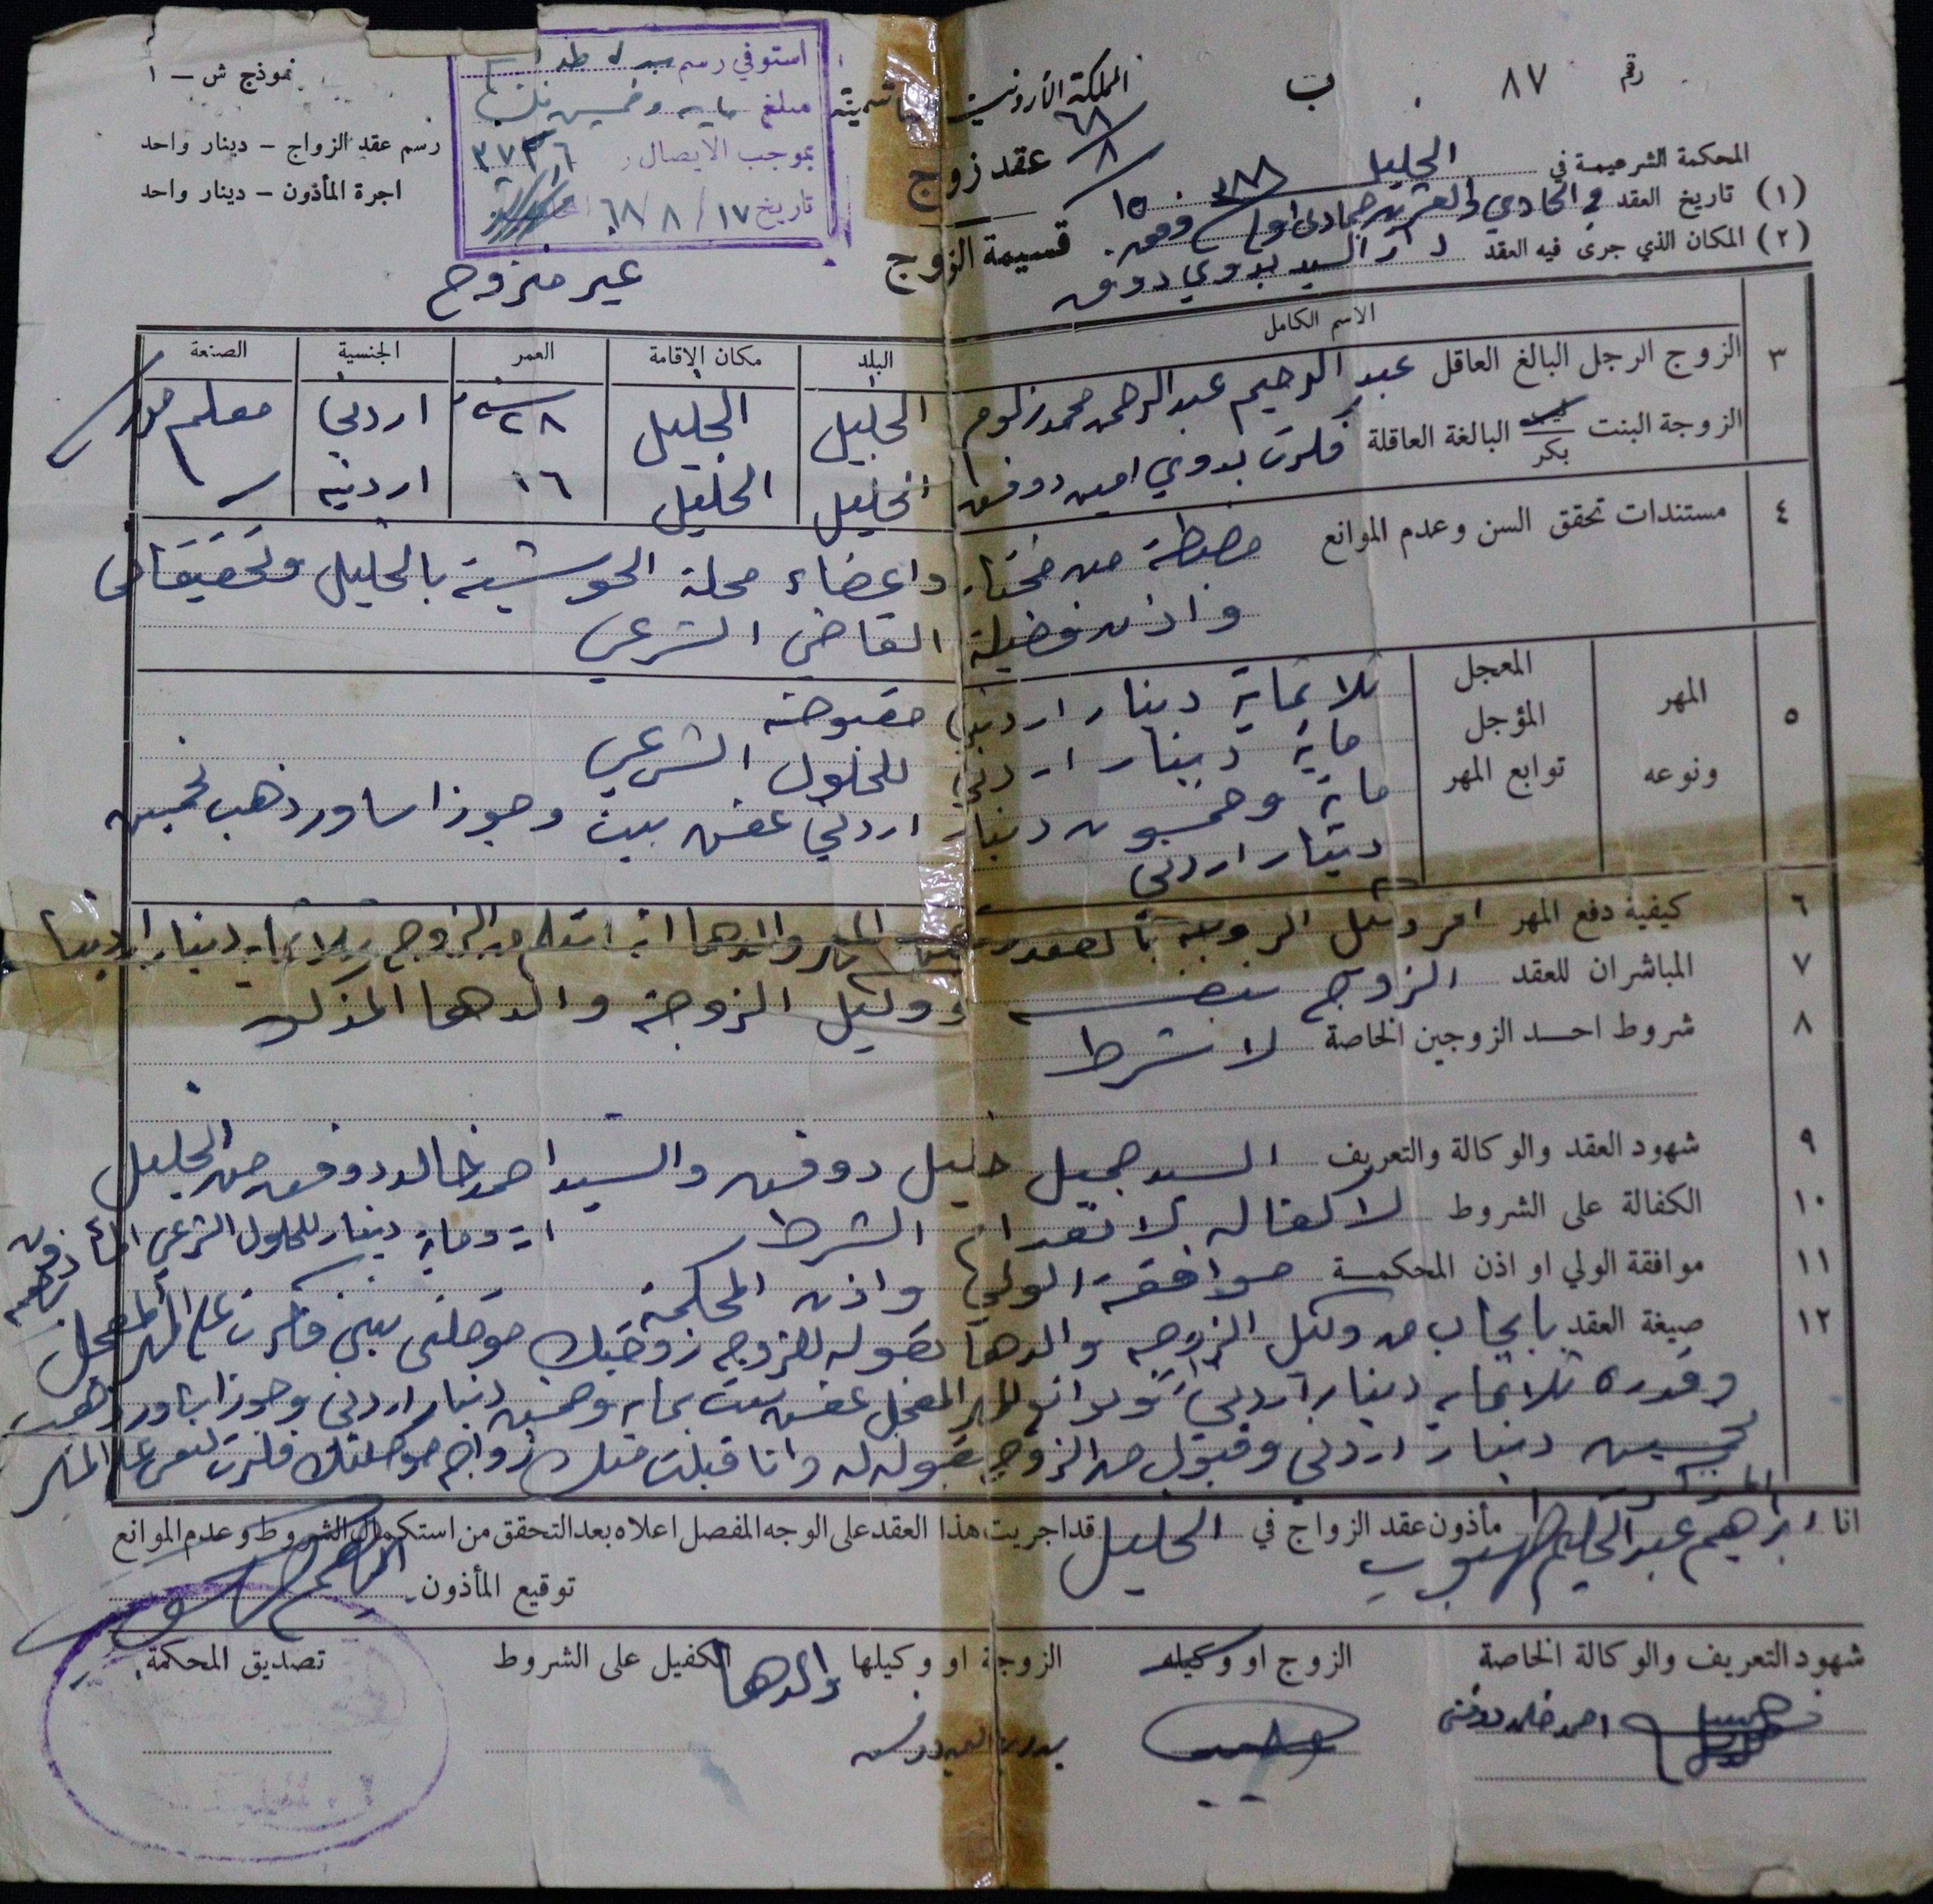 رقم ٨٧ ب
المملكة الأردنية الهاشمية
نموذج ش – ١
استوفي رسم بدل طوابع
مبلغ ماية وخمسين فلسا
بموجب الايصال ر
تاريخ ١٧ / ٨ / ٦٨
رسم عقد الزواج – دينار واحد
اجرة المأذون – دينار واحد
عقد زواج
قسيمة الزواج
المحكمة الشرعية في الخليل
(١) تاريخ العقد في الحادي والعشرين جمادى اولى
(٢) المكان الذي جرى فيه العقد دار السيد بدوي دوفش
غير متزوج
الاسم الكامل البلد مكان الإقامة العمر الجنسية الصنعة
٣ الزوج الرجل البالغ العاقل عبد الرحيم عبد الرحمن محمد زلوم الخليل الخليل ٢٨ سنة اردني معلم
الزوجة البنت ثيب بكر البالغة العاقلة بدوي امين دوفش الخليل الخليل ١٦ اردنية
٤ مستندات تحقق السن وعدم الموانع مضبطة من مختار واعضاء محلة بالخليل وتحقيقاتي
واذن فضيلة القاضي الشرعي
٥ المهر ونوعه المعجل ثلاثماية دينار اردني مقبوضة
المؤجل ماية دينار اردني للحلول الشرعي
توابع المهر ماية وخمسون دينار اردني عفش بيت وجوز اساور ذهب بخمسين
دينار اردني
٦ كيفية دفع المهر اقر وكيل الزوجة بالعقد وقبض المهر والدها انه استلم من الزوج ثلاثماية دينار اردنيا
٧ المباشران للعقد الزوج بنفسه ووكيل الزوجة والدها المذكور
٨ شروط احد الزوجين الخاصة لا شرط
٩ شهود العقد والوكالة والتعريف السيد جميل خليل دوفش والسيد احمد خالد دوفش من الخليل
١٠ الكفالة على الشروط لا كفالة لانعدام الشرط
وماية دينار للحلول الشرعي
١١ موافقة الولي او اذن المحكمة موافقة الولي واذن المحكمة
١٢ صيغة العقد بايجاب من وكيل الزوجة والدها بقوله للزوج زوجتك موكلتي بنتي على المهر المعجل
وقدره ثلاثماية دينار اردني وتوابع للمهر المعجل عفش بيت بماية وخمسين دينار اردني وجوز اساور ذهب
بخمسين دينار اردني وقبول من الزوج بقوله له وانا قبلت منك زواج موكلتك لنفسي على المهر
المذكور
انا ابراهيم عبد الحليم مأذون عقد الزواج في الخليل قد اجريت هذا العقد على الوجه المفصل اعلاه بعد التحقق من استكمال الشروط وعدم الموانع
توقيع المأذون
شهود التعريف والوكالة الخاصة الزوج او وكيله الزوجة او وكيلها والدها الكفيل على الشروط تصديق المحكمة
احمد خالد دوفش